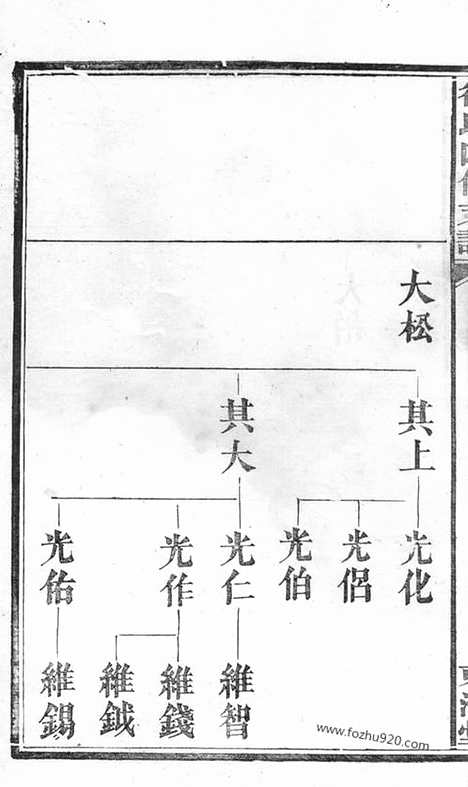 大松
其上
其大
光化
光侶
光伯
光仁
光作
光佑
維智
維錢
維鉞
維錫
www.fozhu920.com